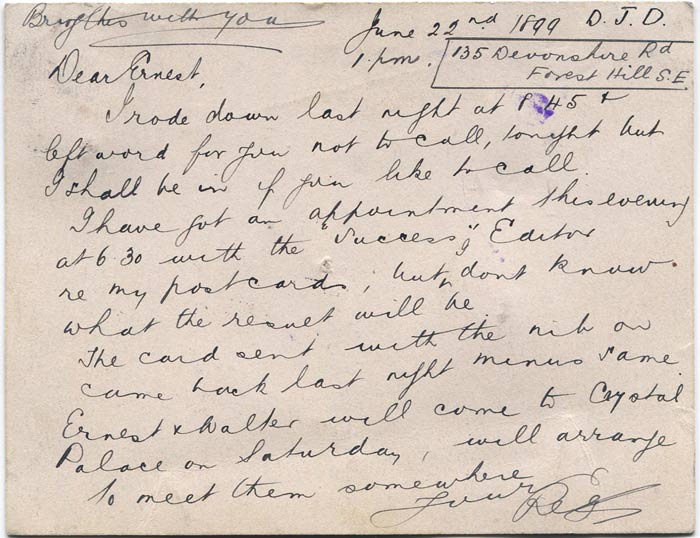 Bring this with you
June 22nd 1899 D. J. D.
1. p.m. 135 Devonshire Rd
Forest Hill S.E.
Dear Ernest,
I rode down last night at 8.45 &
left word for you not to call, tonight but
I shall be in if you like to call.
I have got an appointment this evening
at 6.30 with the "Success" Editor
re my postcards, but dont know
what the result will be.
The card sent with the nib on
came back last night minus same.
Ernest & Walter will come to Crystal
Palace on Saturday, will arrange
to meet them somewhere
Yours Reg